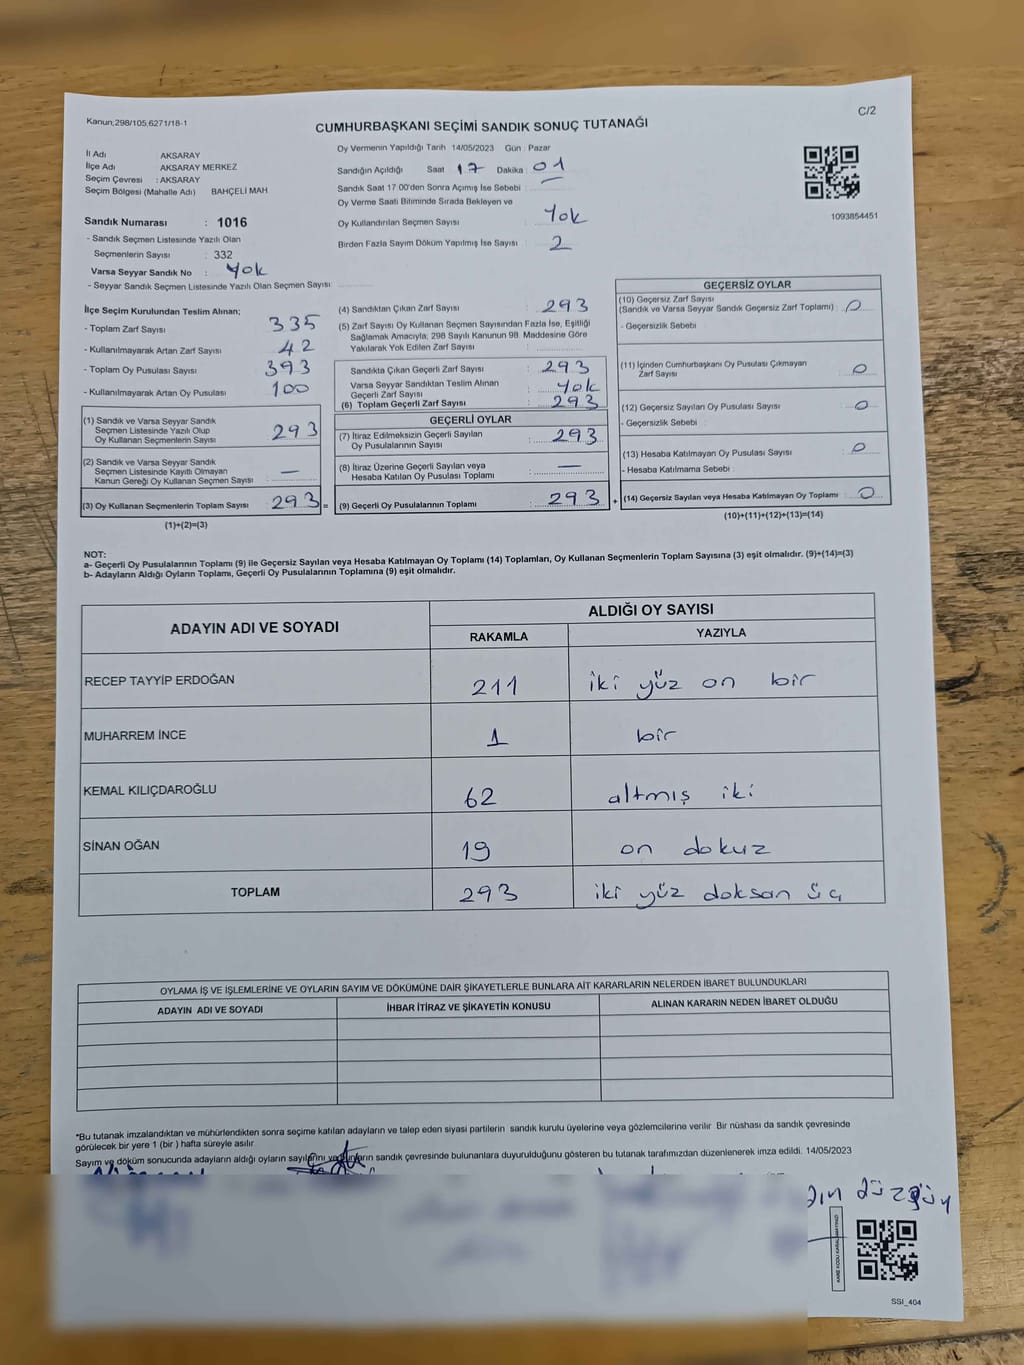 Kanun;298/105,6271/18-1
C/2
CUMHURBAŞKANI SEÇİMİ SANDIK SONUÇ TUTANAĞI
İl Adı : AKSARAY
İlçe Adı : AKSARAY MERKEZ
Seçim Çevresi : AKSARAY
Seçim Bölgesi (Mahalle Adı) BAHÇELİ MAH
Sandık Numarası : 1016
- Sandık Seçmen Listesinde Yazılı Olan
Seçmenlerin Sayısı : 332
Varsa Seyyar Sandık No : Yok
- Seyyar Sandık Seçmen Listesinde Yazılı Olan Seçmen Sayısı:
Oy Vermenin Yapıldığı Tarih 14/05/2023 Gün : Pazar
Sandığın Açıldığı Saat 17 Dakika : 01
Sandık Saat 17.00'den Sonra Açımış İse Sebebi
Oy Verme Saati Bitiminde Sırada Bekleyen ve
Oy Kullandırılan Seçmen Sayısı Yok
Birden Fazla Sayım Döküm Yapılmış İse Sayısı : 2
1093854451
İlçe Seçim Kurulundan Teslim Alınan;
- Toplam Zarf Sayısı : 335
- Kullanılmayarak Artan Zarf Sayısı : 42
- Toplam Oy Pusulası Sayısı : 393
- Kullanılmayarak Artan Oy Pusulası : 100
(1) Sandık ve Varsa Seyyar Sandık
Seçmen Listesinde Yazılı Olup
Oy Kullanan Seçmenlerin Sayısı : 293
(2) Sandık ve Varsa Seyyar Sandık
Seçmen Listesinde Kayıtlı Olmayan
Kanun Gereği Oy Kullanan Seçmen Sayısı : —
(3) Oy Kullanan Seçmenlerin Toplam Sayısı : 293 =
(1)+(2)=(3)
(4) Sandıktan Çıkan Zarf Sayısı : 293
(5) Zarf Sayısı Oy Kullanan Seçmen Sayısından Fazla İse, Eşitliği
Sağlamak Amacıyla, 298 Sayılı Kanunun 98. Maddesine Göre
Yakılarak Yok Edilen Zarf Sayısı :
Sandıkta Çıkan Geçerli Zarf Sayısı : 293
Varsa Seyyar Sandıktan Teslim Alınan
Geçerli Zarf Sayısı : Yok
(6) Toplam Geçerli Zarf Sayısı : 293
GEÇERLİ OYLAR
(7) İtiraz Edilmeksizin Geçerli Sayılan
Oy Pusulalarının Sayısı : 293
(8) İtiraz Üzerine Geçerli Sayılan veya
Hesaba Katılan Oy Pusulası Toplamı : —
(9) Geçerli Oy Pusulalarının Toplamı : 293 +
GEÇERSİZ OYLAR
(10) Geçersiz Zarf Sayısı
(Sandık ve Varsa Seyyar Sandık Geçersiz Zarf Toplamı) : 0
- Geçersizlik Sebebi :
(11) İçinden Cumhurbaşkanı Oy Pusulası Çıkmayan
Zarf Sayısı : 0
(12) Geçersiz Sayılan Oy Pusulası Sayısı : 0
- Geçersizlik Sebebi :
(13) Hesaba Katılmayan Oy Pusulası Sayısı : 0
- Hesaba Katılmama Sebebi :
(14) Geçersiz Sayılan veya Hesaba Katılmayan Oy Toplamı : 0
(10)+(11)+(12)+(13)=(14)
NOT:
a- Geçerli Oy Pusulalarının Toplamı (9) ile Geçersiz Sayılan veya Hesaba Katılmayan Oy Toplamı (14) Toplamları, Oy Kullanan Seçmenlerin Toplam Sayısına (3) eşit olmalıdır. (9)+(14)=(3)
b- Adayların Aldığı Oyların Toplamı, Geçerli Oy Pusulalarının Toplamına (9) eşit olmalıdır.
ADAYIN ADI VE SOYADI ALDIĞI OY SAYISI
RAKAMLA YAZIYLA
RECEP TAYYİP ERDOĞAN 211 iki yüz on bir
MUHARREM İNCE 1 bir
KEMAL KILIÇDAROĞLU 62 altmış iki
SİNAN OĞAN 19 on dokuz
TOPLAM 293 iki yüz doksan üç
OYLAMA İŞ VE İŞLEMLERİNE VE OYLARIN SAYIM VE DÖKÜMÜNE DAİR ŞİKAYETLERLE BUNLARA AİT KARARLARIN NELERDEN İBARET BULUNDUKLARI
ADAYIN ADI VE SOYADI İHBAR İTİRAZ VE ŞİKAYETİN KONUSU ALINAN KARARIN NEDEN İBARET OLDUĞU
*Bu tutanak imzalandıktan ve mühürlendikten sonra seçime katılan adayların ve talep eden siyasi partilerin sandık kurulu üyelerine veya gözlemcilerine verilir Bir nüshası da sandık çevresinde
görülecek bir yere 1 (bir ) hafta süreyle asılır
Sayım ve döküm sonucunda adayların aldığı oyların sayılarını ve sandık çevresinde bulunanlara duyurulduğunu gösteren bu tutanak tarafımızdan düzenlenerek imza edildi. 14/05/2023
SSI_404